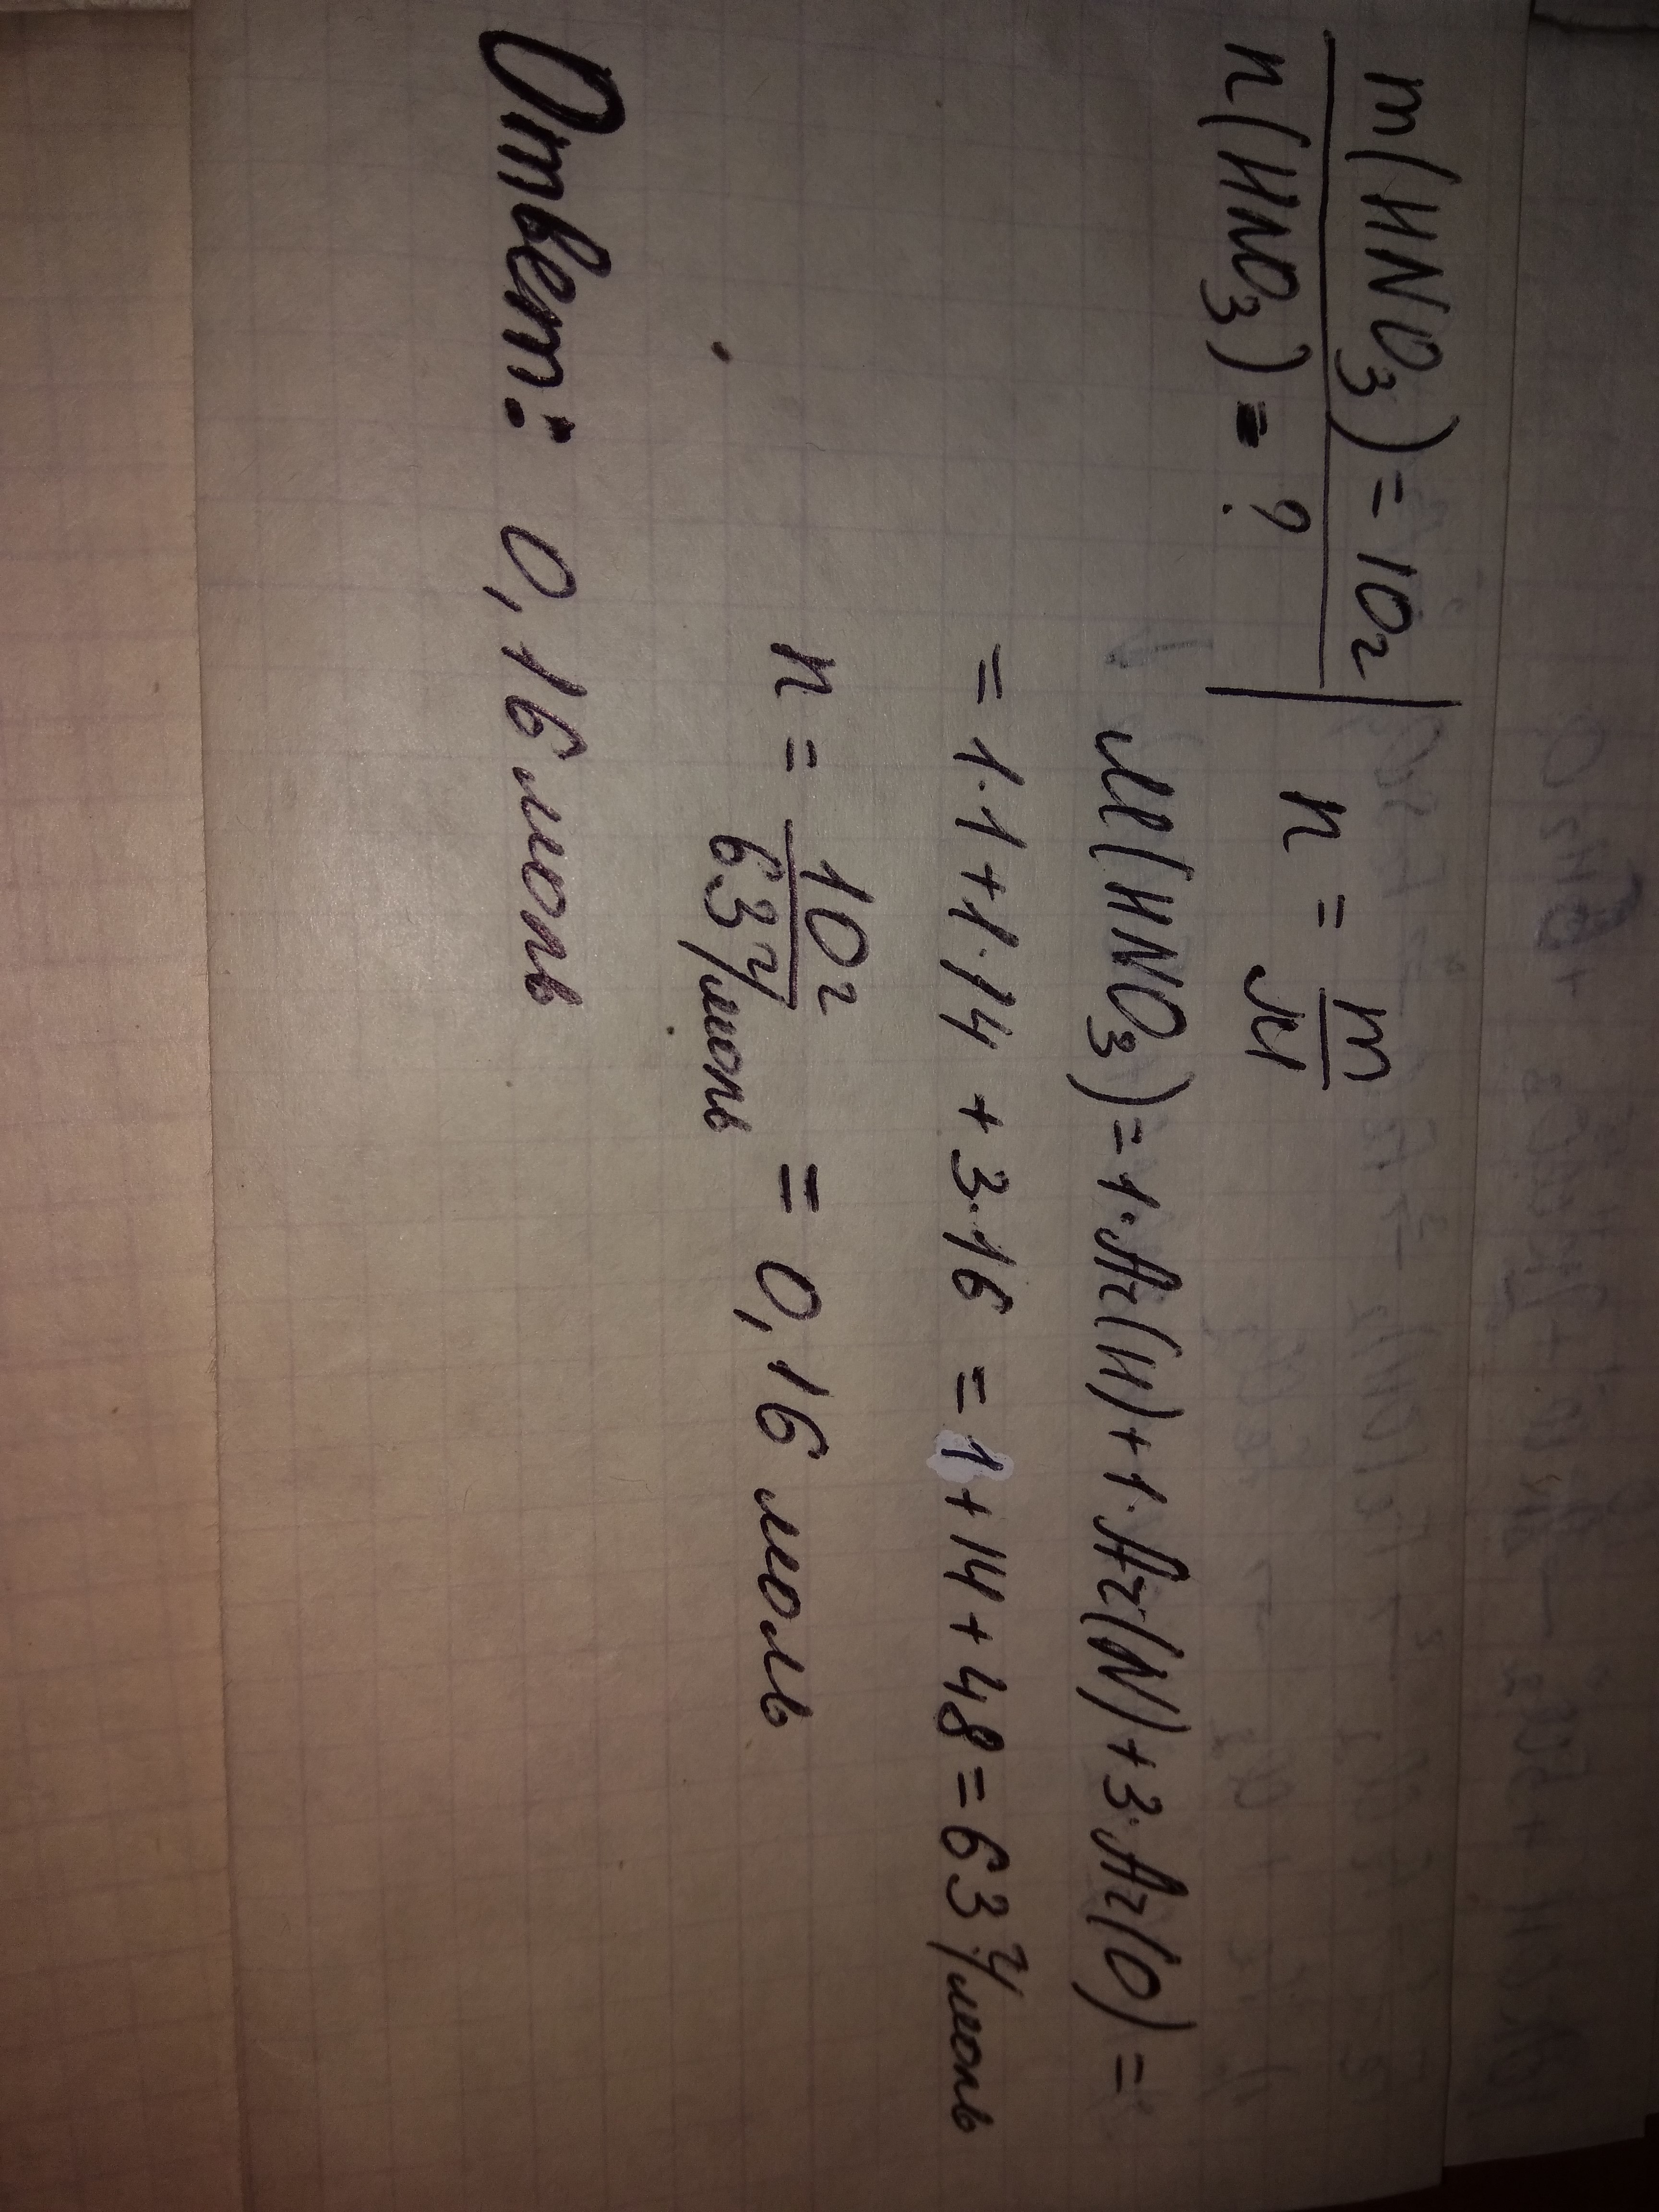 m(HNO₃) = 10г
n(HNO₃) = ?
n = m/M
M(HNO₃) = 1·Ar(H) + 1·Ar(N) + 3·Ar(O) =
= 1·1 + 1·14 + 3·16 = 1 + 14 + 48 = 63 г/моль
n = 10г / 63 г/моль = 0,16 моль
Ответ: 0,16 моль